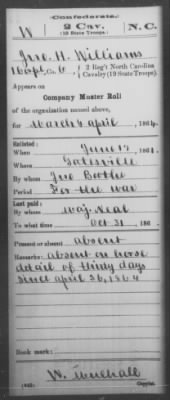 Confederate.
W 2 Cav. N.C.
(19 State Troops)
Jno. H. Williams
Co. 2 Reg't North Carolina
Cavalry (19 State Troops).
Appears on
Company Muster Roll
of the organization named above,
for March & April, 1864.
Enlisted:
When June 15, 1861.
Where Gatesville
By whom Jno Boothe
Period For the war
Last paid:
By whom Maj. Neal
To what time Oct 31, 186
Present or absent absent
Remarks: absent on horse
detail of thirty days
since April 26, 1864
Book mark:
W.
(642) Copyist.